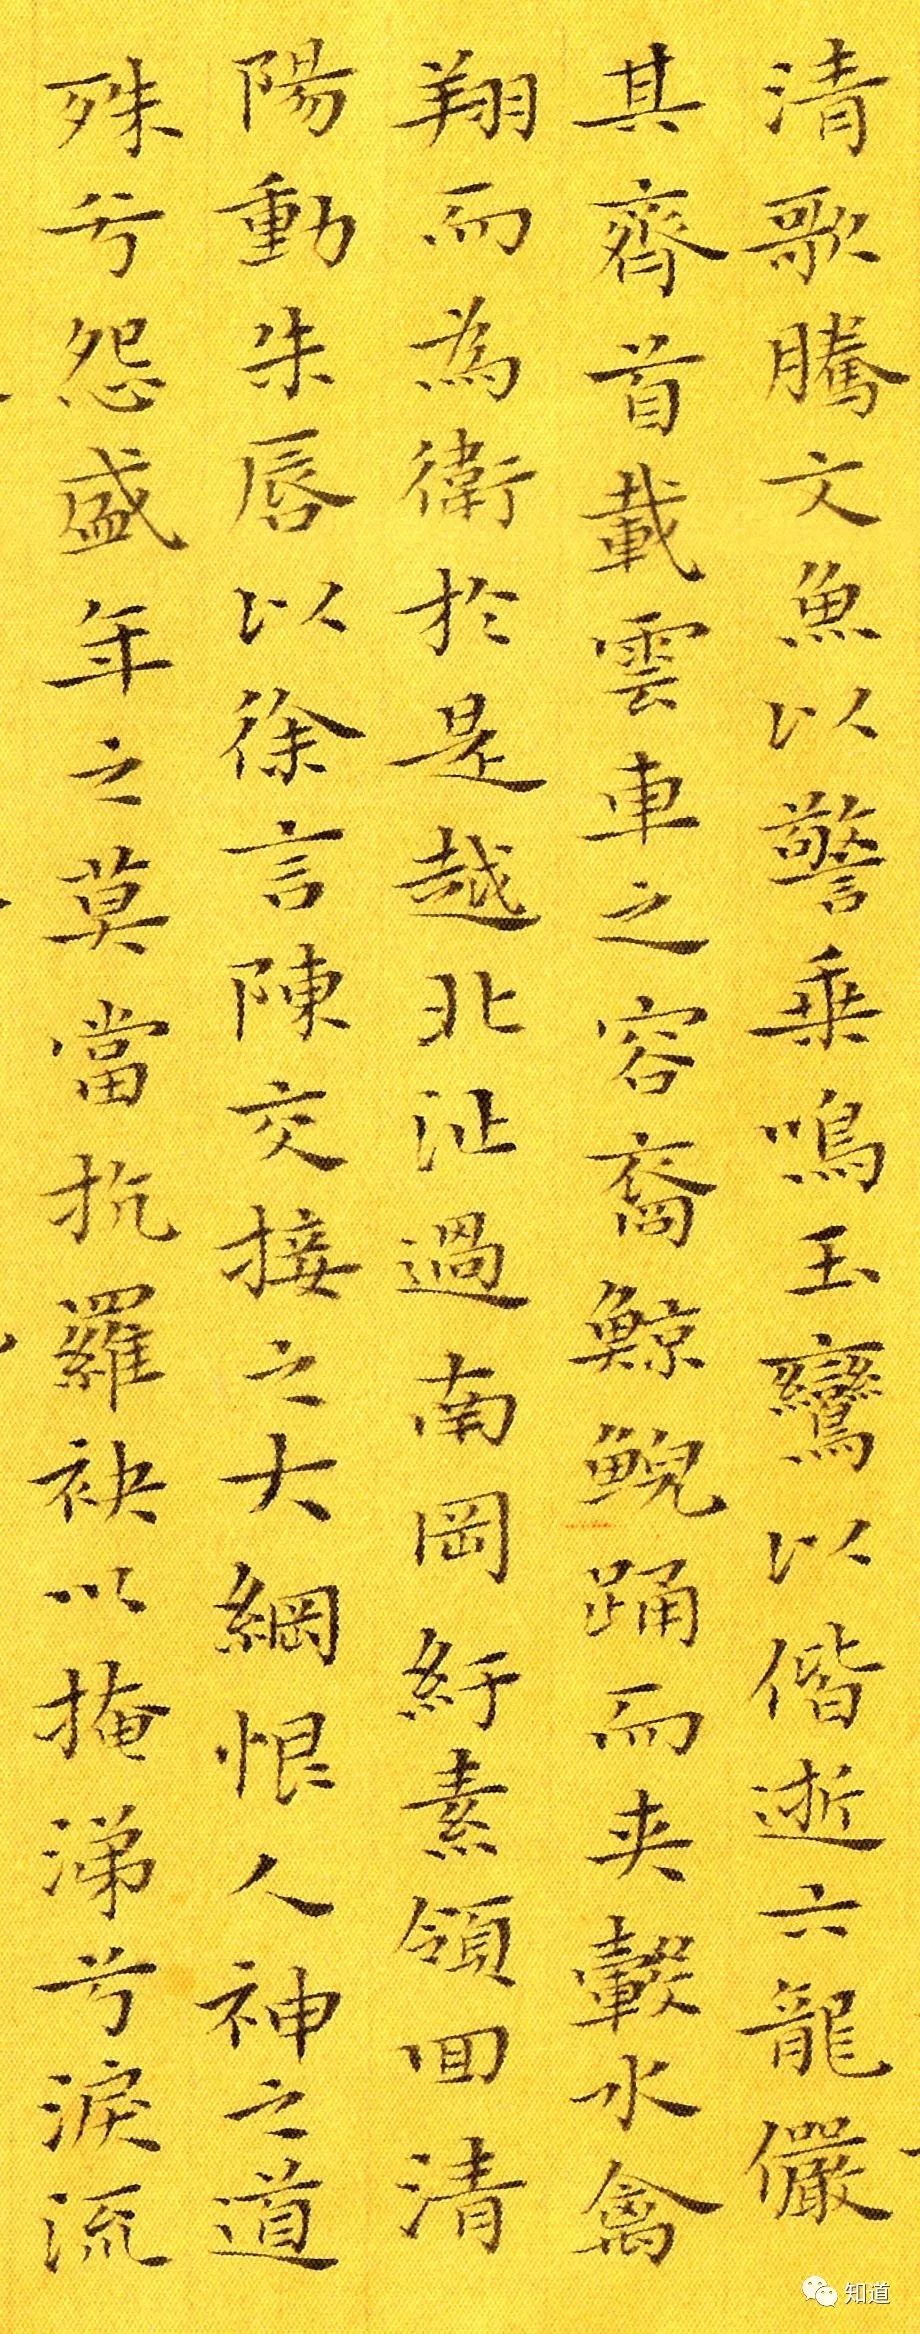 清歌騰文魚以警乗鳴玉鸞以偕逝六龍儼
其齊首載雲車之容裔鯨鯢踊而夾轂水禽
翔而為衛於是越北沚過南岡紆素領回清
陽動朱脣以徐言陳交接之大綱恨人神之道
殊兮怨盛年之莫當抗羅袂以掩涕兮淚流
知道